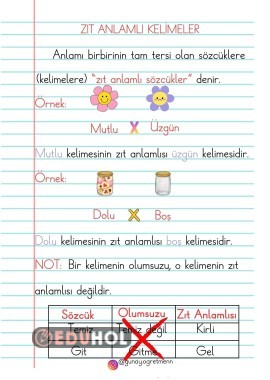 ZIT ANLAMLI KELİMELER
Anlamı birbirinin tam tersi olan sözcüklere
(kelimelere) "zıt anlamlı sözcükler" denir.
Örnek:
Mutlu X Üzgün
Mutlu kelimesinin zıt anlamlısı üzgün kelimesidir.
Örnek:
Dolu X Boş
Dolu kelimesinin zıt anlamlısı boş kelimesidir.
NOT: Bir kelimenin olumsuzu, o kelimenin zıt
anlamlısı değildir.
Sözcük Olumsuzu Zıt Anlamlısı
Temiz Temiz değil Kirli
Git Gitme Gel
EDUHOL
@gunayogretmenn